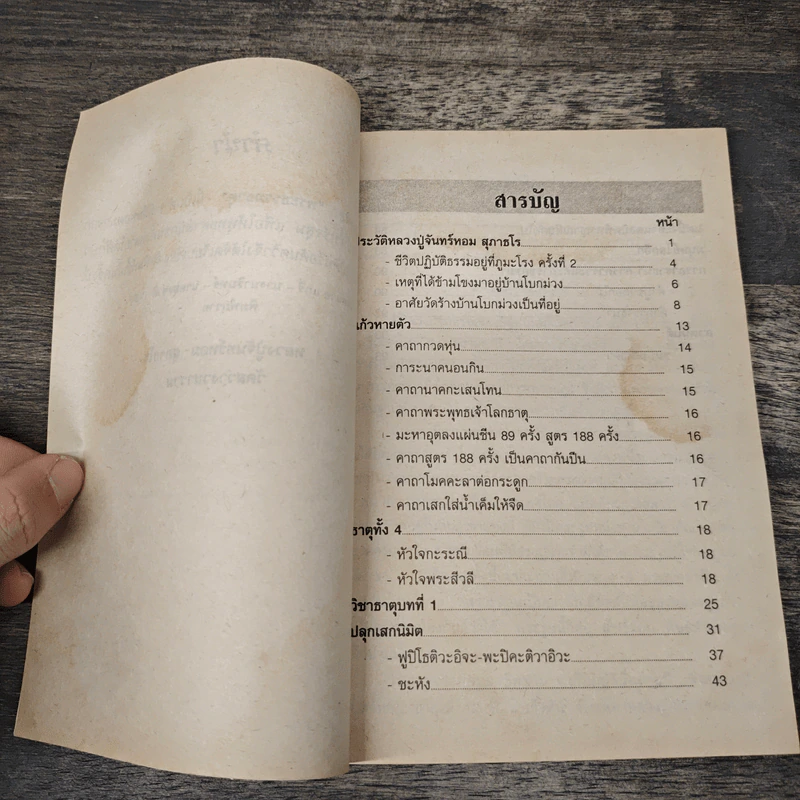 สารบัญ
หน้า
ประวัติหลวงปู่จันทร์หอม สุภาธโร 1
- ชีวิตปฏิบัติธรรมอยู่ที่ภูมะโรง ครั้งที่ 2 4
- เหตุที่ได้ข้ามโขงมาอยู่บ้านโบกม่วง 6
- อาศัยวัดร้างบ้านโบกม่วงเป็นที่อยู่ 8
แก้วหายตัว 13
- คาถากวดหุ่น 14
- การะนาคนอนกิน 15
- คาถานาคกะเสนโทน 15
- คาถาพระพุทธเจ้าโลกธาตุ 16
- มะหาอุตลงแผ่นซีน 89 ครั้ง สูตร 188 ครั้ง 16
- คาถาสูตร 188 ครั้ง เป็นคาถากันปืน 16
- คาถาโมคคะลาต่อกระดูก 17
- คาถาเสกใส่น้ำเค็มให้จืด 17
ธาตุทั้ง 4 18
- หัวใจกะระณี 18
- หัวใจพระสีวลี 18
วิชาธาตุบทที่ 1 25
ปลุกเสกนิมิต 31
- ฟูปิโธติวะอิจะ-พะปิคะติวาอิวะ 37
- ชะหัง 43